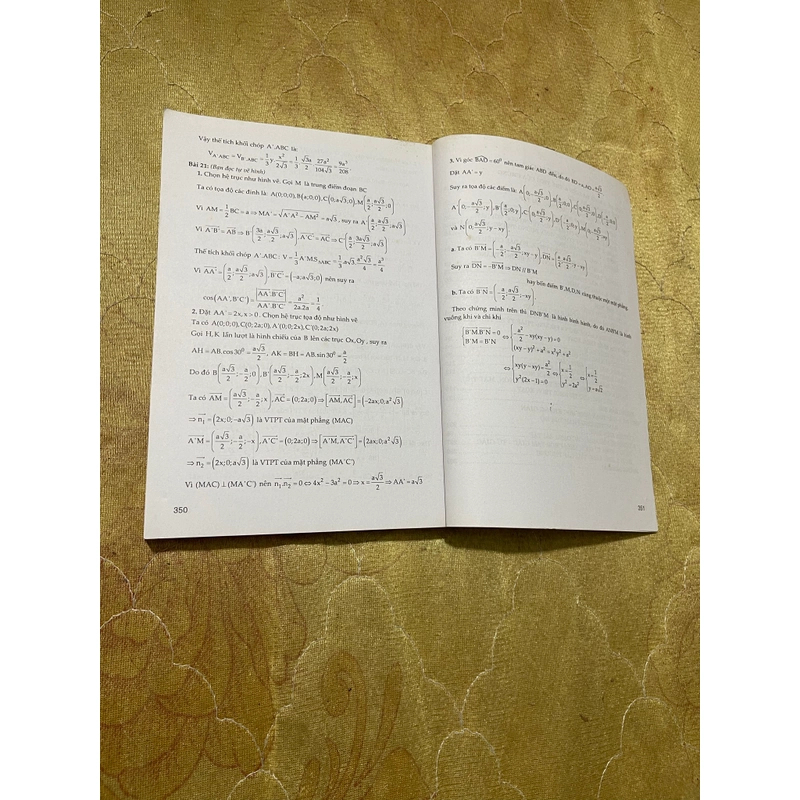 Vậy thể tích khối chóp A'.ABC là:
V_{A'.ABC} = V_{B'.ABC} = \frac{1}{3}y.\frac{a^2}{2\sqrt{3}} = \frac{1}{3}.\frac{\sqrt{3}a}{2}.\frac{27a^2}{104\sqrt{3}} = \frac{9a^3}{208}
Bài 21: (Bạn đọc tự vẽ hình)
1. Chọn hệ trục như hình vẽ. Gọi M là trung điểm đoạn BC
Ta có tọa độ các đỉnh là A(0;0;0), B(a;0;0), C(0;a√3;0), M(\frac{a}{2};\frac{a√3}{2};0)
Vì AM = \frac{1}{2}BC = a ⇒ MA' = \sqrt{A'A^2 − AM^2} = a√3, suy ra A'(\frac{a}{2};\frac{a√3}{2};a√3)
Vì \overrightarrow{A'B'} = \overrightarrow{AB} ⇒ B'(\frac{3a}{2};\frac{a√3}{2};a√3), \overrightarrow{A'C'} = \overrightarrow{AC} ⇒ C'(\frac{a}{2};\frac{3a√3}{2};a√3)
Thể tích khối chóp A'.ABC: V = \frac{1}{3}A'M.S_{ΔABC} = \frac{1}{3}a√3.
Vì \overrightarrow{AA'} = (\frac{a}{2};\frac{a√3}{2};a√3), \overrightarrow{B'C'} = (−a;a√3;0) nên suy ra
cos(AA',B'C') = = \frac{a^2}{2a.2a} = \frac{1}{4}
2. Đặt AA' = 2x, x > 0. Chọn hệ trục tọa độ như hình vẽ
Ta có A(0;0;0), C(0;2a;0), A'(0;0;2x), C'(0;2a;2x)
Gọi H, K lần lượt là hình chiếu của B lên các trục Ox, Oy, suy ra
AH = AB.cos30⁰ = \frac{a√3}{2}, AK = BH = AB.sin30⁰ = \frac{a}{2}
Do đó B(\frac{a√3}{2};−\frac{a}{2};0), B'(\frac{a√3}{2};−\frac{a}{2};2x), M(\frac{a√3}{2};−\frac{a}{2};x)
Ta có \overrightarrow{AM} = (\frac{a√3}{2};−\frac{a}{2};x), \overrightarrow{AC} = (0;2a;0) ⇒ [\overrightarrow{AM},\overrightarrow{AC}] = (−2ax;0;a²√3)
⇒ \overrightarrow{n_1} = (2x;0;−a√3) là VTPT của mặt phẳng (MAC)
\overrightarrow{A'M} = (\frac{a√3}{2};−\frac{a}{2};−x), \overrightarrow{A'C'} = (0;2a;0) ⇒ [\overrightarrow{A'M},\overrightarrow{A'C'}] = (2ax;0;a²√3)
⇒ \overrightarrow{n_2} = (2x;0;a√3) là VTPT của mặt phẳng (MA'C')
Vì (MAC) ⊥ (MA'C') nên \overrightarrow{n_1}.\overrightarrow{n_2} = 0 ⇔ 4x² − 3a² = 0 ⇒ x = \frac{a√3}{2} ⇒ AA' = a√3
350
3. Vì góc BAD = 60⁰ nên tam giác ABD đều, do đó BD = a, AO = \frac{a√3}{2}
Đặt AA' = y
Suy ra tọa độ các điểm là:
và N
a. Ta có \overrightarrow{B'M} =
Suy ra \overrightarrow{DN} = −\overrightarrow{B'M} ⇒ DN // B'M
hay bốn điểm B',M,D,N cùng thuộc một mặt phẳng.
b. Ta có \overrightarrow{B'N} =
Theo chứng minh trên thì DNB'M là hình bình hành, do đó là hình
vuông khi và chỉ khi
\overrightarrow{B'M}.\overrightarrow{B'N} = 0
B'M = B'N
351